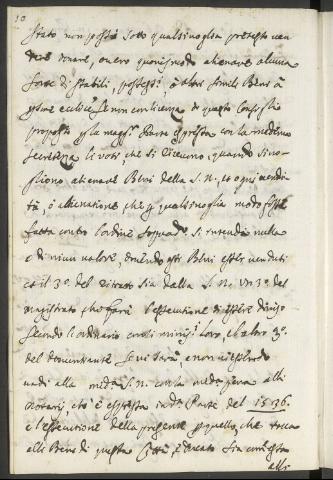 10
stato non possi sotto qualsivoglia pretesto ven
dere donare, overo quovismodo alienare alcuna
sorte di stabili, possessi, ò altri simili Beni à
se non con licenza di questo Conseglio
proposta la magg. Parte espressa con la medema
secretezza li voti che si ricevono, quando si vo
gliono alienare Beni della S. N., et ogni vendi
ta, ò alienatione, che p qualsivoglia modo fosse
fatta contro l'ordine sopradº s'intenda nulla
e di niun valore, dovendo esser venduti
et il 3º del ritratto sia della S. N. un 3º del
magistrato che farà l'essecutione di essere diviso
secondo l'ordinario con li ministri loro, et l'altro 3º
del denontiante se vi sarà, e non vi essendo
vadi alla medª S. N. con la medª pena alli
nodari, ch'è espressa in dª Parte del 1536.
e l'essecutione della presente p quello, che tocca
alli Beni di questa Città, è Ducato sia commessa
alli